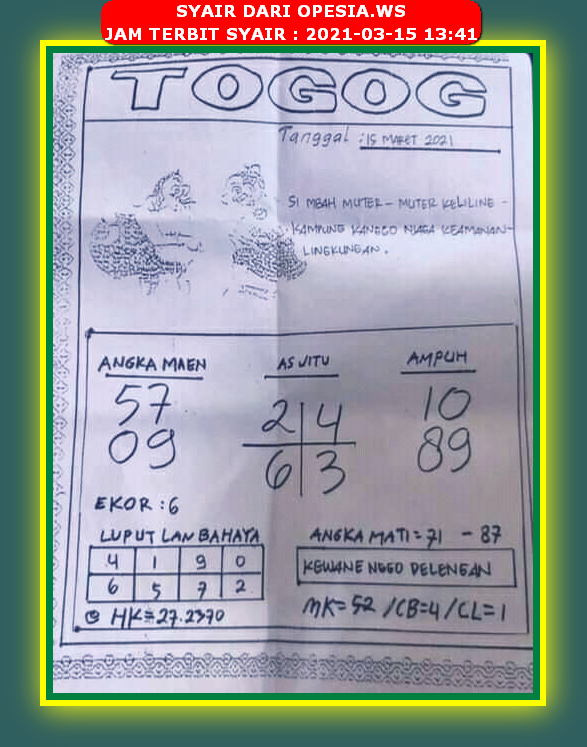 SYAIR DARI OPESIA.WS
JAM TERBIT SYAIR : 2021-03-15 13:41
TOGOG
Tanggal : 15 MARET 2021
SI MBAH MUTER - MUTER KELILINE -
KAMPUNG KANGGO NJAGA KEAMANAN -
LINGKUNGAN.
ANGKA MAEN
57
09
AS JITU
2 4
6 3
AMPUH
10
89
EKOR : 6
LUPUT LAN BAHAYA
4 1 9 0
6 5 7 2
HK = 27.2370
ANGKA MATI = 71 - 87
KEWANE NGGO PELENGAN
MK = 52 / CB = 4 / CL = 1